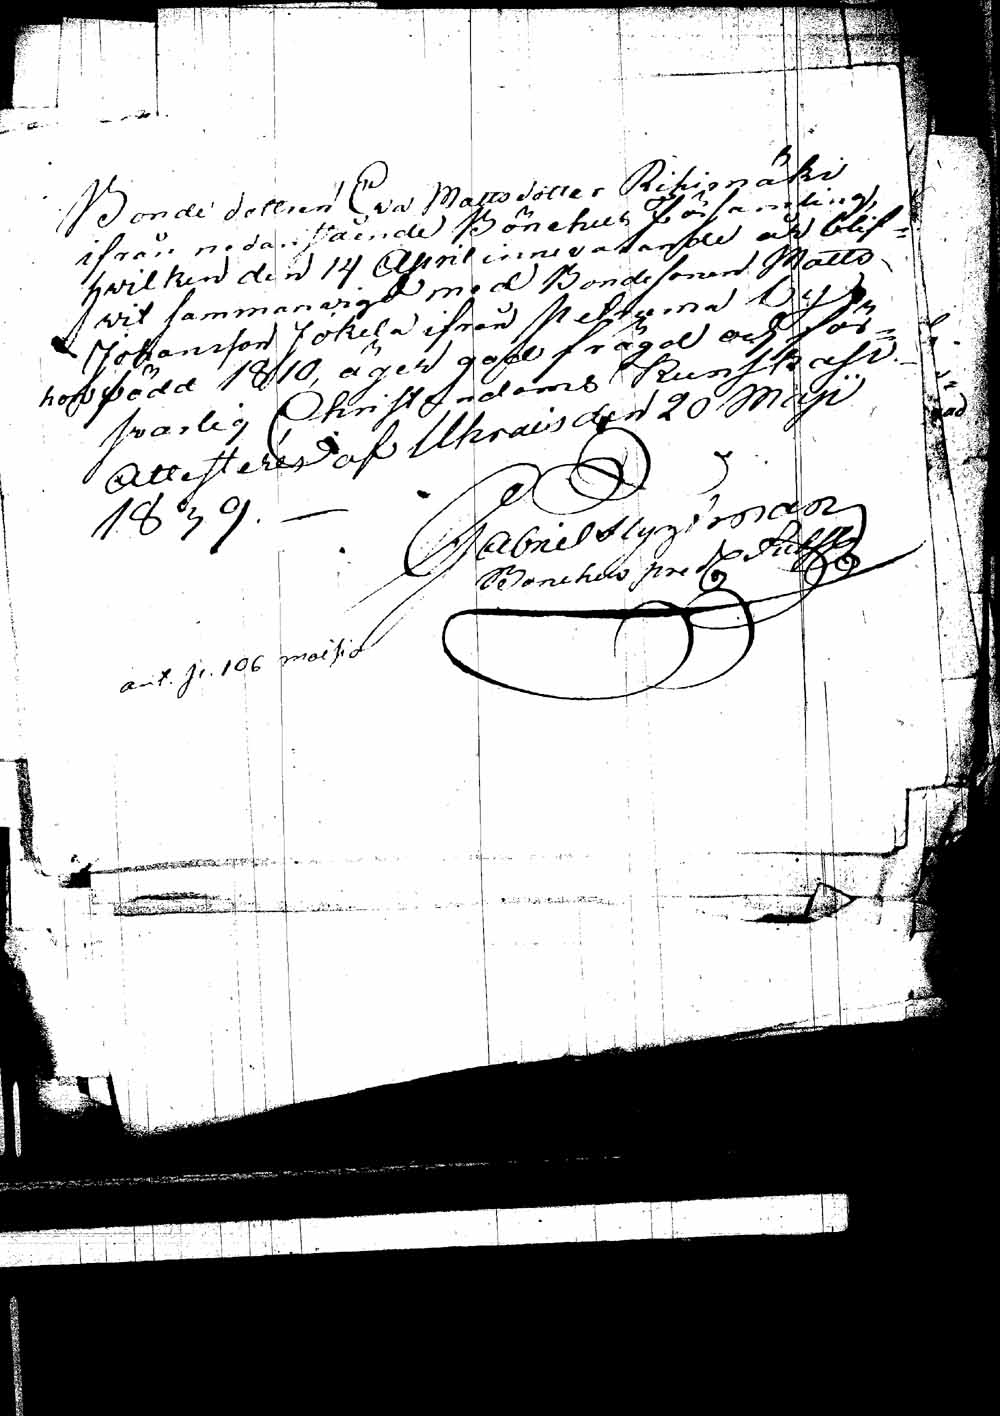 Bonde dottren Eva Mattsdotter Riihimäki
ifrån nedanstående Bönehus Församling,
hwilken den 14 April innevarande år blif=
wit sammanvigd med Bondesonen Matts
Johansson Jokela ifrån By,
hon född 1810, äger god frägd och för=
svarlig Christendoms Kunskap
Attesteras af Ukrais den 20 Maji
1839. —
Gabriel
Bönehus pred.
ant. p. 106